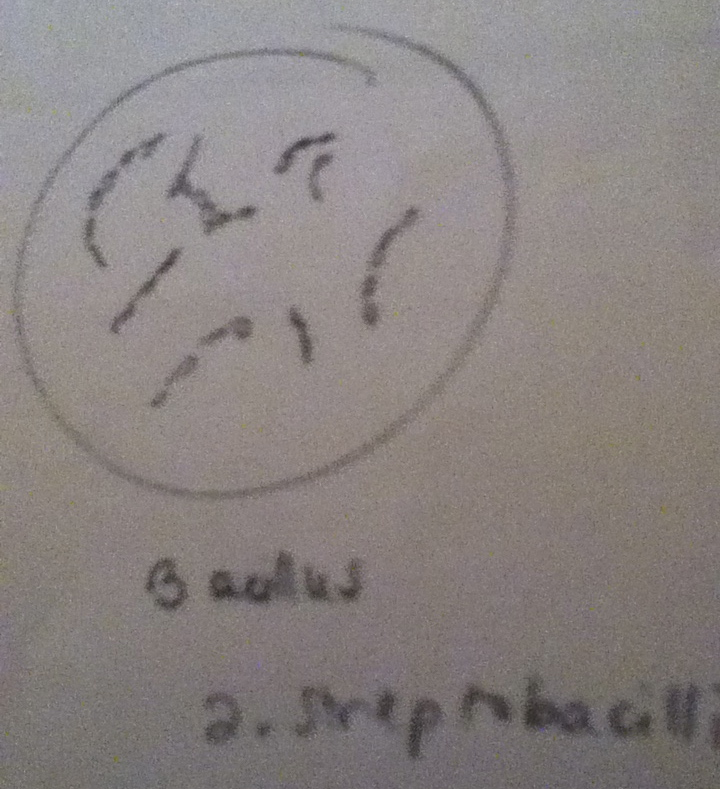 Bacillus
2. Streptobacilli